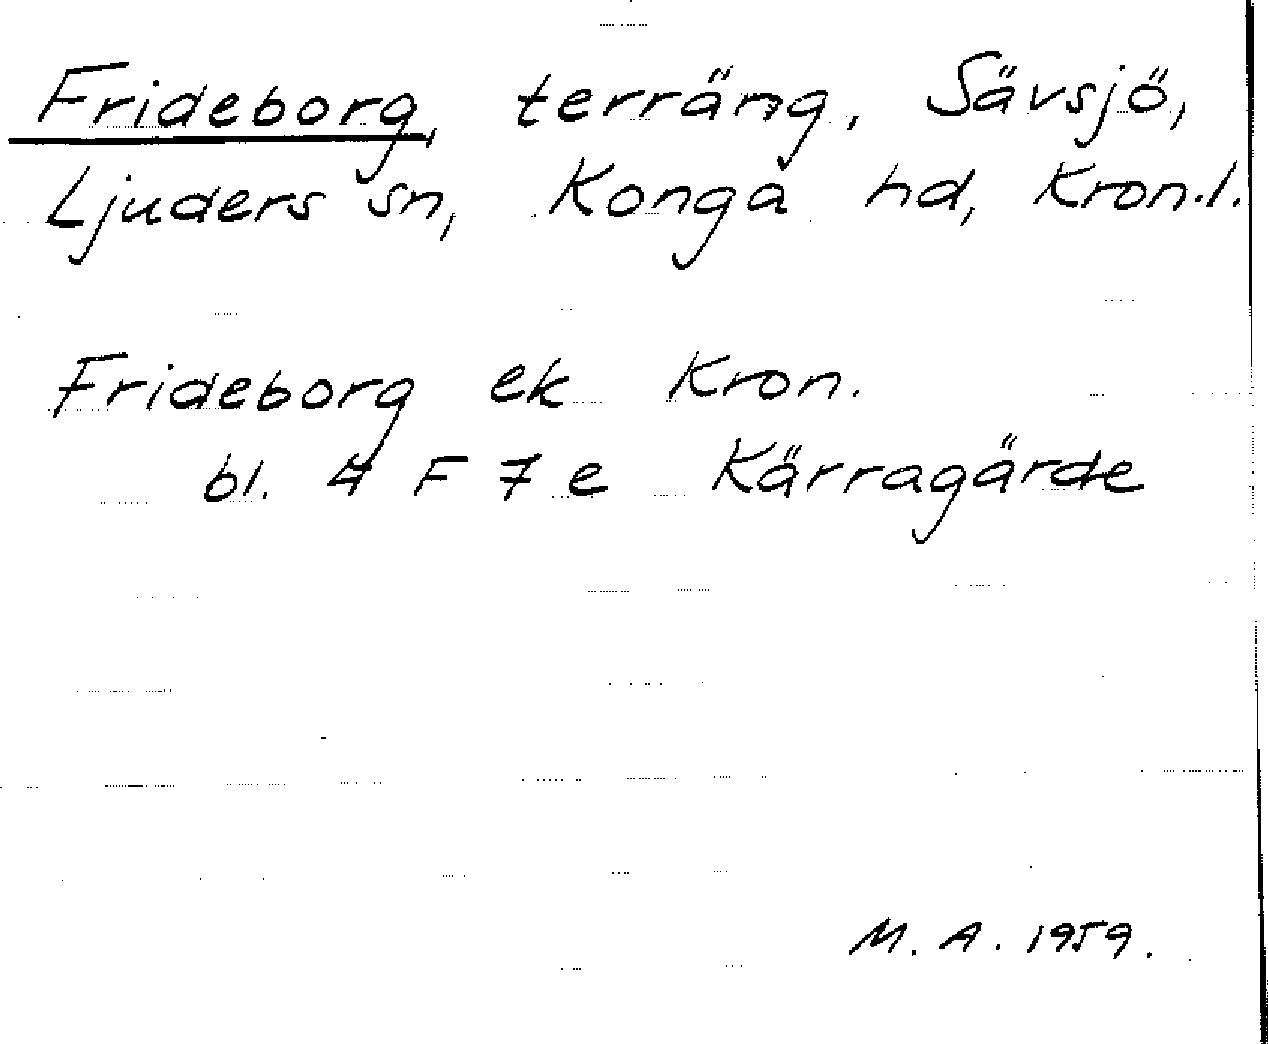 Frideborg, terräng, Sävsjö,
Ljuders sn, Konga hd, Kron.l.
Frideborg ek Kron.
bl. 4 F 7 e Kärragärde
M. A. 1959.